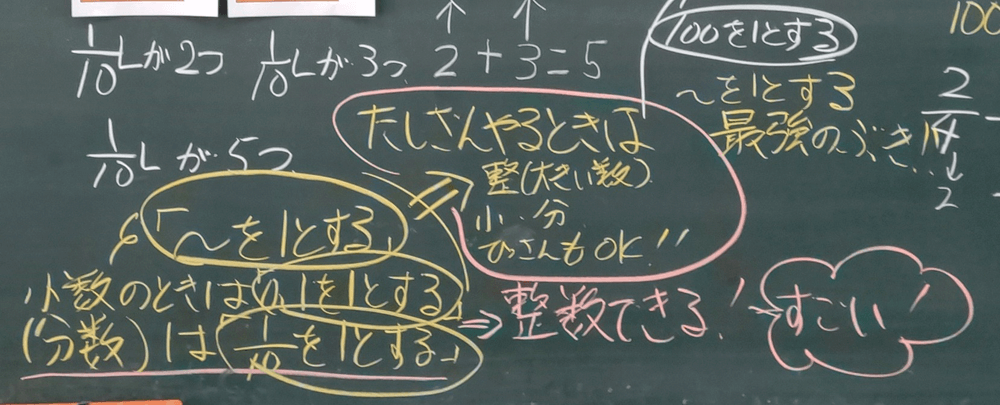 1/10Lが2つ 1/10Lが3つ 2+3=5
1/10Lが5つ
「～を1とする」
小数のときは「0.1を1とする」
(分数)は「1/10を1とする」
⇒整数できる!
→すごい!
たしざんやるときは
整(大きい数)
小・分
ひっさんもOK!!
100を1とする
～を1とする
最強のぶき!!
100
2
4
↓
2